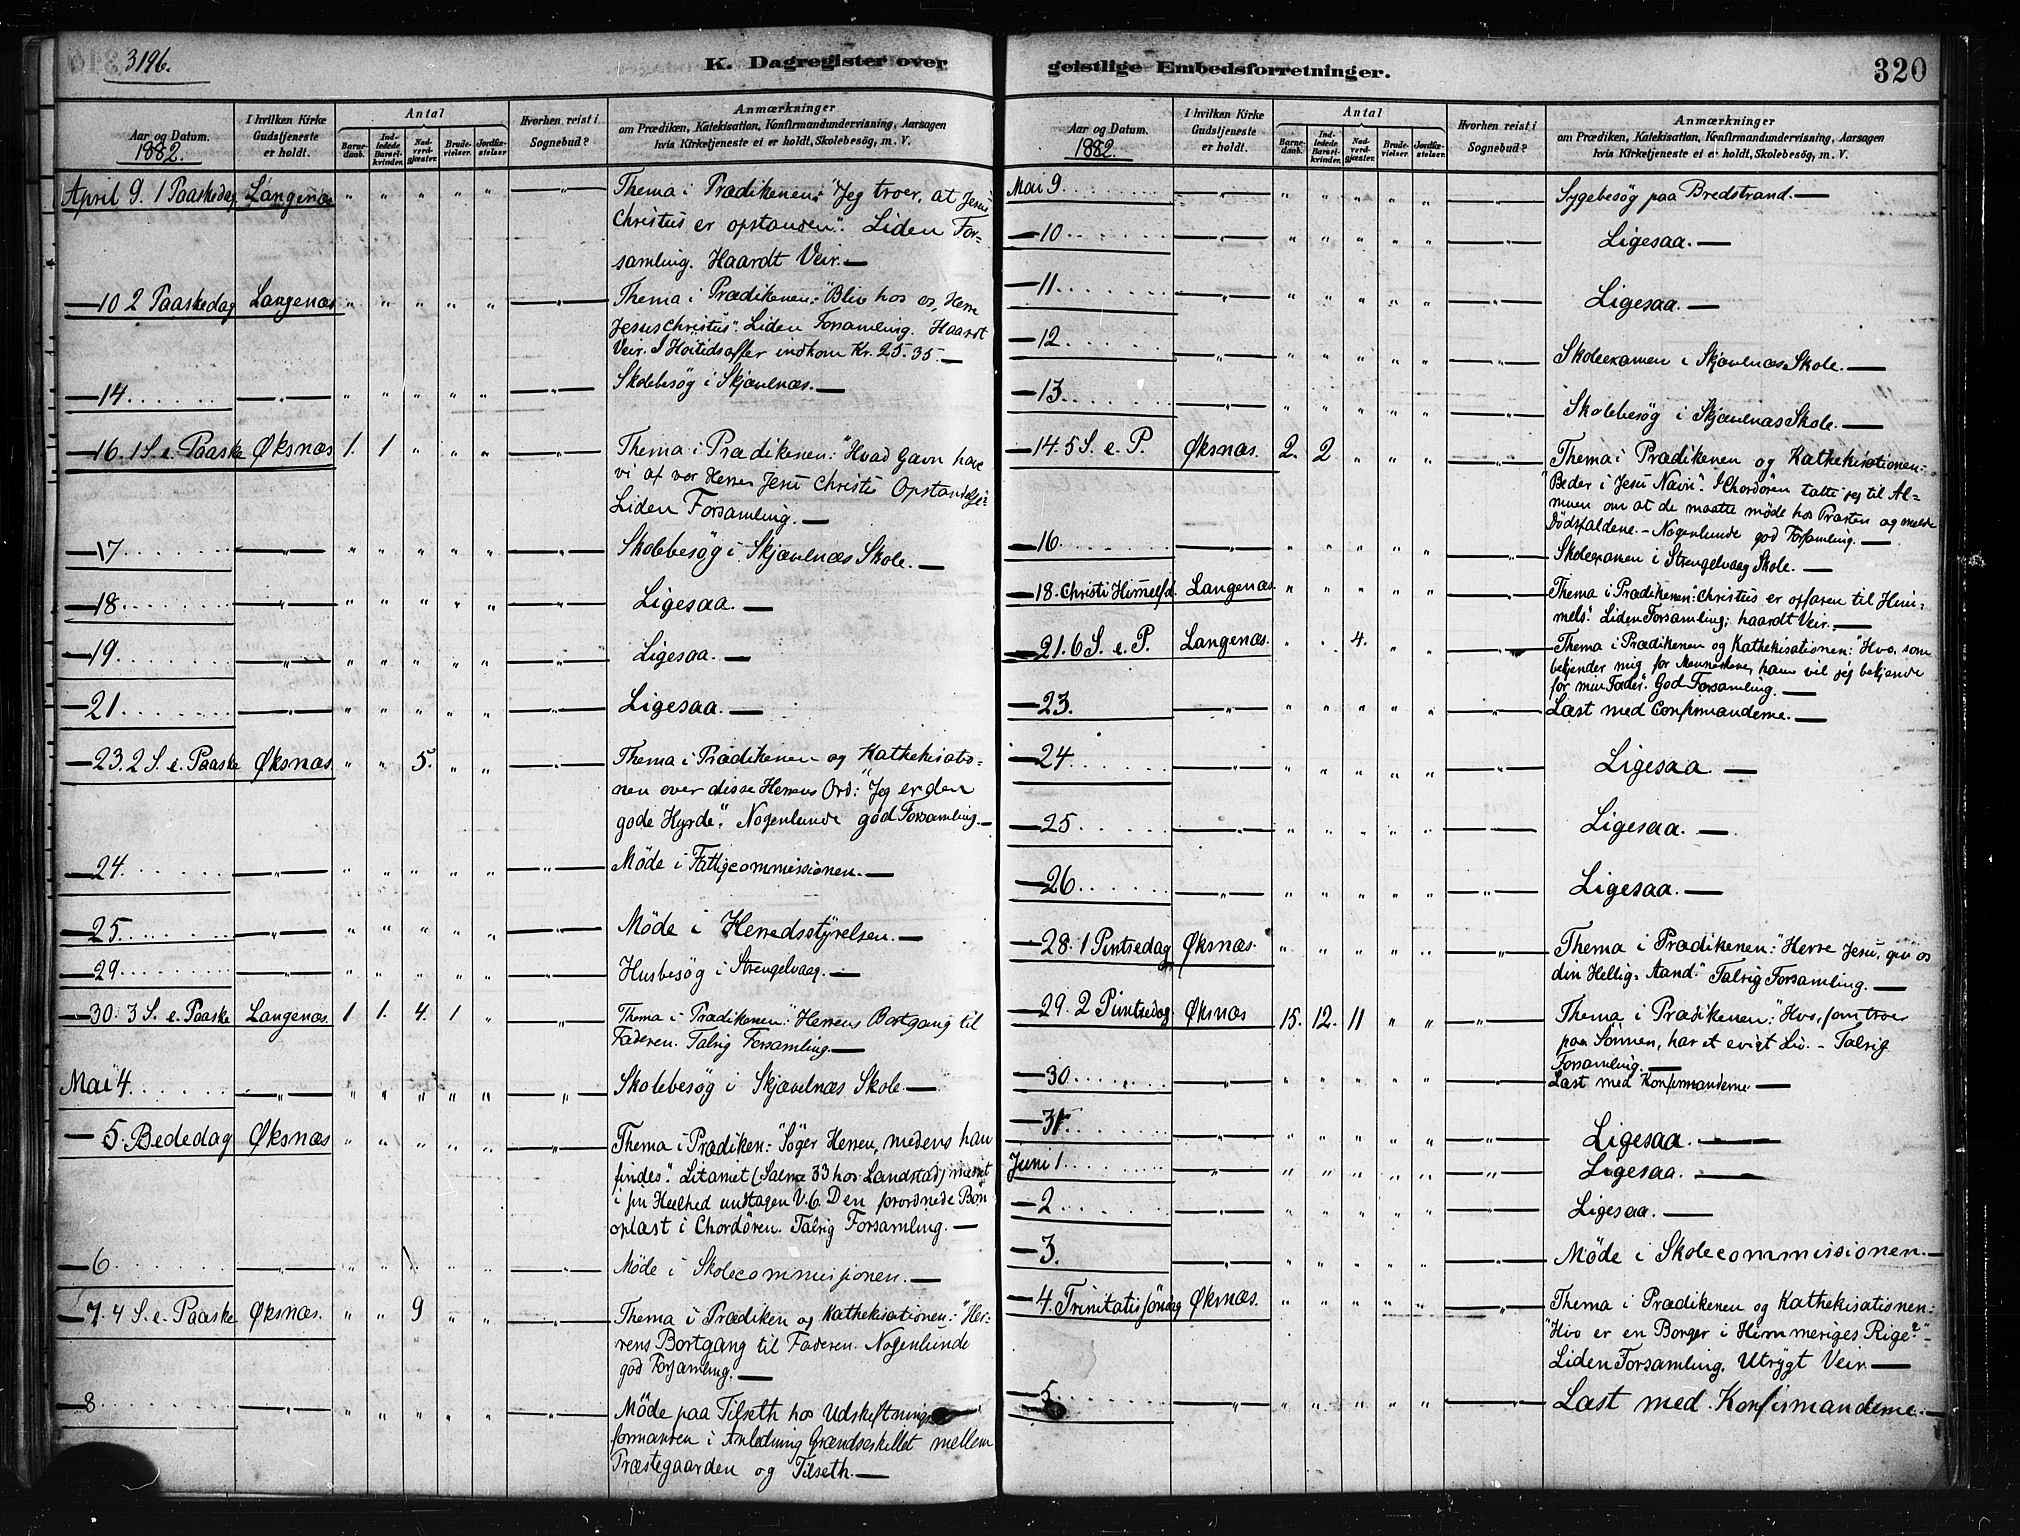 319b.
K. Dagregister over
Aar og Datum.
1882.
I hvilken Kirke
Gudstjeneste
er holdt.
Antal
Barne-
daab.
Ind-
ledede
Barsel-
kvinder.
Nad-
verd-
gjæster.
Brude-
vielser.
Jordfæ-
stelser.
Hvorhen reist i
Sognebud?
Anmærkninger
om Prædiken, Katekisation, Konfirmandundervisning, Aarsagen
hvis Kirketjeneste ei er holdt, Skolebesøg, m. V.
April 9. 1 Paaskedag Langenæs " " " " " " Thema i Prædikenen: "Jeg troer, at Jesus
Christus er opstanden". Liden For-
samling. Haardt Veir.
10 2 Paaskedag Langenæs " " " " " " Thema i Prædikenen: "Bliv hos os, Herre
Jesus Christus". Liden Forsamling. Haardt
Veir. I Høitidsoffer indkom Kr. 25.35.
14 " " " " " " " Skolebesøg i Skjævelnæs.
16. 1 S. e. Paaske Øksnæs 1. 1 " " " " Thema i Prædikenen: "Hvad Gavn have
vi af vor Herres Jesu Christi Opstandelse"
Liden Forsamling.
17 " " " " " " " Skolebesøg i Skjævelnæs Skole.
18 " " " " " " " Ligesaa.
19 " " " " " " " Ligesaa.
21 " " " " " " " Ligesaa.
23. 2 S. e. Paaske Øksnæs " " 5. " " " Thema i Prædikenen og Kathekisatio-
nen over disse Herrens Ord: "Jeg er den
gode Hyrde". Nogenlunde god Forsamling.
24 " " " " " " " Møde i Fattigcommissionen.
25 " " " " " " " Møde i Herredsstyrelsen.
29 " " " " " " " Husbesøg i Strengelvaag.
30. 3 S. e. Paaske Langenæs. 1 1. 4. 1 " " Thema i Prædikenen: "Herrens Bortgang til
Faderen. Talrig Forsamling.
Mai 4 " " " " " " " Skolebesøg i Skjævelnæs Skole.
5. Bededag Øksnæs " " " " " " Thema i Prædiken: "Søger Herren, medens han
findes". Litaniet (Salme 33 hos Landstad) messet
i sin Heelhed undtagen V. 6. Den forordnede Bøn
oplæst i Chordøren. Talrig Forsamling.
6 " " " " " " Møde i Skolecommissionen.
7. 4 S. e. Paaske Øksnæs. " " 9 " " " Thema i Prædiken og Kathekisationen: "Her-
rens Bortgang til Faderen. Nogenlunde
god Forsamling.
8 " " " " " " " Møde paa Tilseth hos Udskiftnings
formanden i Anledning Grændseskillet mellem
Præstegaarden og Tilseth.
geistlige Embedsforretninger.
320
Aar og Datum.
1882.
I hvilken Kirke
Gudstjeneste
er holdt.
Antal
Barne-
daab.
Ind-
ledede
Barsel-
kvinder.
Nad-
verd-
gjæster.
Brude-
vielser.
Jordfæ-
stelser.
Hvorhen reist i
Sognebud?
Anmærkninger
om Prædiken, Katekisation, Konfirmandundervisning, Aarsagen
hvis Kirketjeneste ei er holdt, Skolebesøg, m. V.
Mai 9 " " " " " " " Sygebesøg paa Bredstrand.
10 " " " " " " " Ligesaa.
11 " " " " " " " Ligesaa.
12 " " " " " " " Skoleexamen i Skjævelnæs Skole.
13 " " " " " " Skolebesøg i Skjævelnæs Skole.
14. 5 S. e. P. Øksnæs. 2. 2 " " " " Thema i Prædikenen og Kathekisationen:
"Beder i Jesu Navn". I Chordøren talte jeg til Al-
muen om at de maatte møde hos Præsten og melde
Dødsfaldene. - Nogenlunde god Forsamling.
16 " " " " " " " Skoleexamen i Strengelvaag Skole.
18. Christi Himelfd. Langenæs. " " " " " " Thema i Prædikenen: Christus er opfaren til Him-
mels". Liden Forsamling; haardt Veir.
21. 6 S. e. P. Langenæs. " " 4. " " " Thema i Prædikenen og Kathekisationen: "Hvo, som
bekjender mig for Menneskene, ham vil jeg bekjende
for min Fader". God Forsamling.
23. " " " " " " " Læst med Confirmanderne.
24 " " " " " " " Ligesaa
25 " " " " " " " Ligesaa.
26 " " " " " " " Ligesaa.
28. 1 Pintsedag Øksnæs. " " " " " " Thema i Prædikenen: "Herre Jesu, giv os
din Hellig-Aand." Talrig Forsamling.
29. 2 Pintsedag Øksnæs 15. 12. 11 " " " Thema i Prædikenen: "Hvo, som troer
paa Sønnen, har et evigt Liv. - Talrig
Forsamling.
30 " " " " " " " Læst med Konfirmanderne
31 " " " " " " " Ligesaa.
Juni 1 " " " " " " " Ligesaa.
2 " " " " " " " Ligesaa.
3. " " " " " " " Møde i Skolecommissionen.
4. Trinitatissöndag Øksnæs. " " " " " " Thema i Prædikenen og Kathekisationen:
"Hvo er en Borger i Himmeriges Rige?"
Liden Forsamling. Utrygt Veir.
5 " " " " " " " Læst med Konfirmanderne.